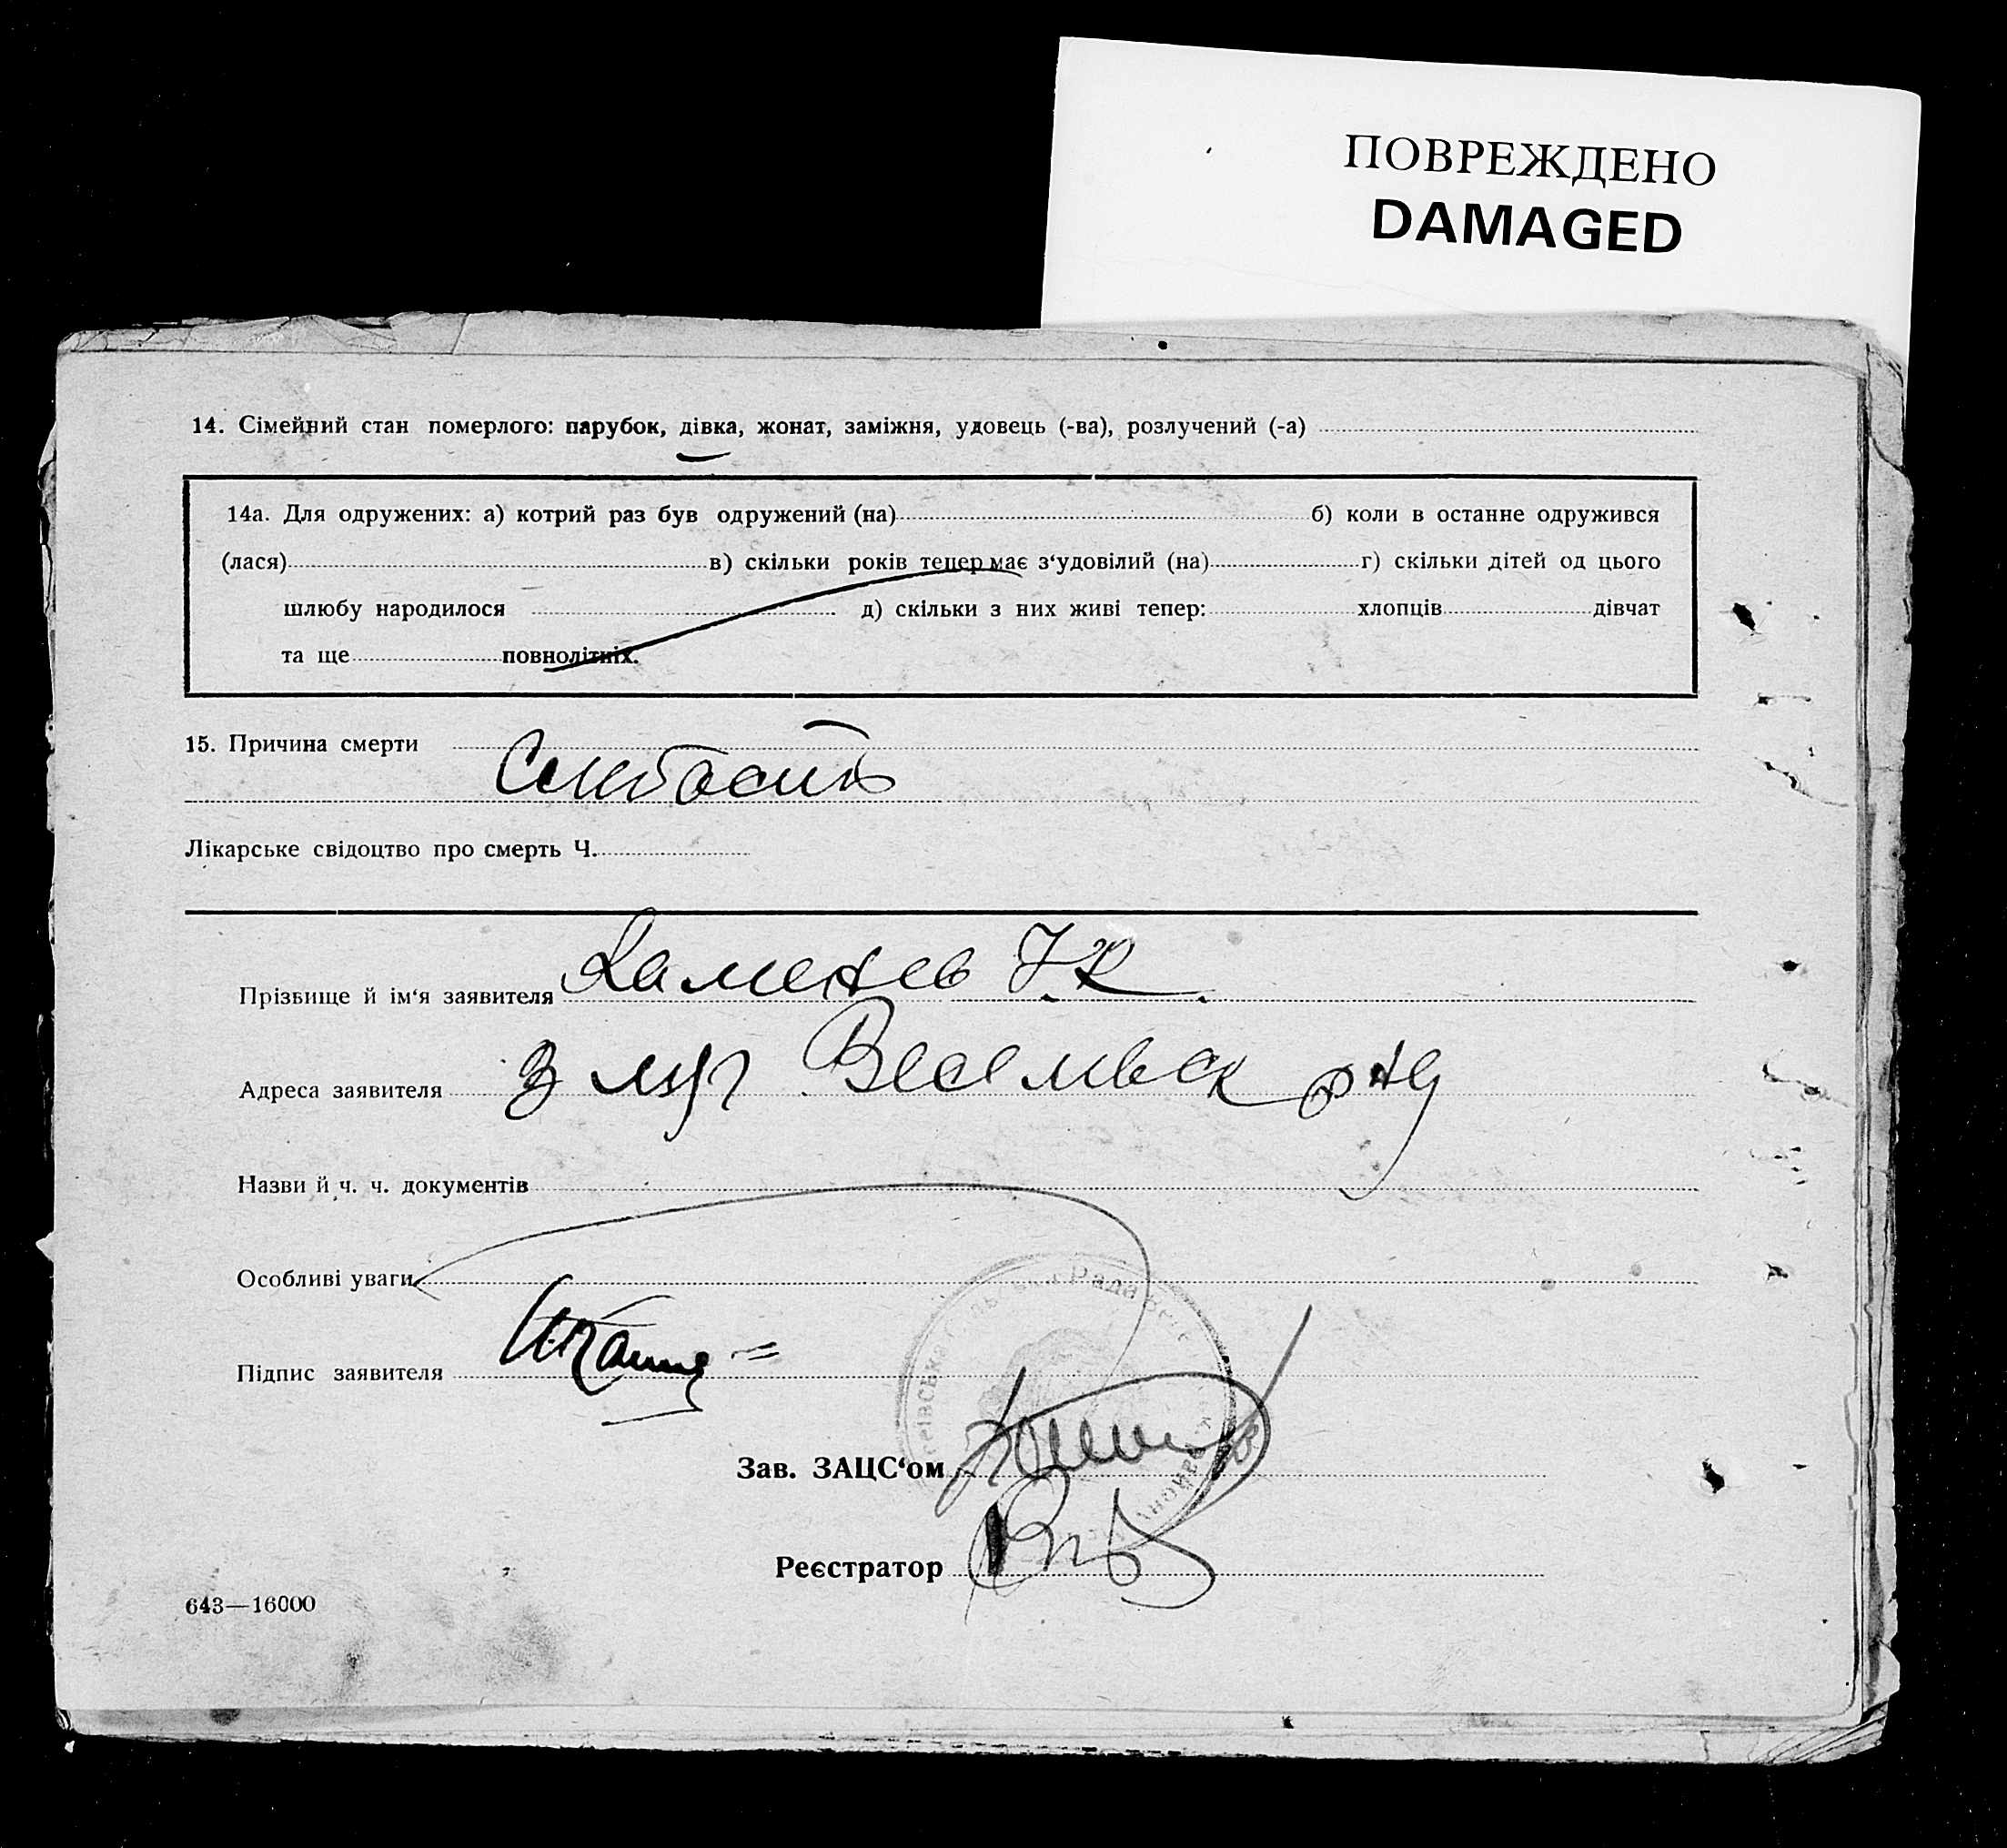 ПОВРЕЖДЕНО
DAMAGED
14. Сімейний стан померлого: парубок, дівка, жонат, заміжня, удовець (-ва), розлучений (-а)
14а. Для одружених: а) котрий раз був одружений (на) б) коли в останнє одружився
(лася) в) скільки років тепер має з‘удовілий (на) г) скільки дітей од цього
шлюбу народилося д) скільки з них живі тепер: хлопців дівчат
та ще повнолітніх.
15. Причина смерти
Слабость
Лікарське свідоцтво про смерть Ч.
Прізвище й ім‘я заявителя Каменев
Адреса заявителя з
Назви й ч. ч. документів
Особливі уваги
Підпис заявителя
Рада
Зав. ЗАЦС‘ом
Реєстратор
643—16000